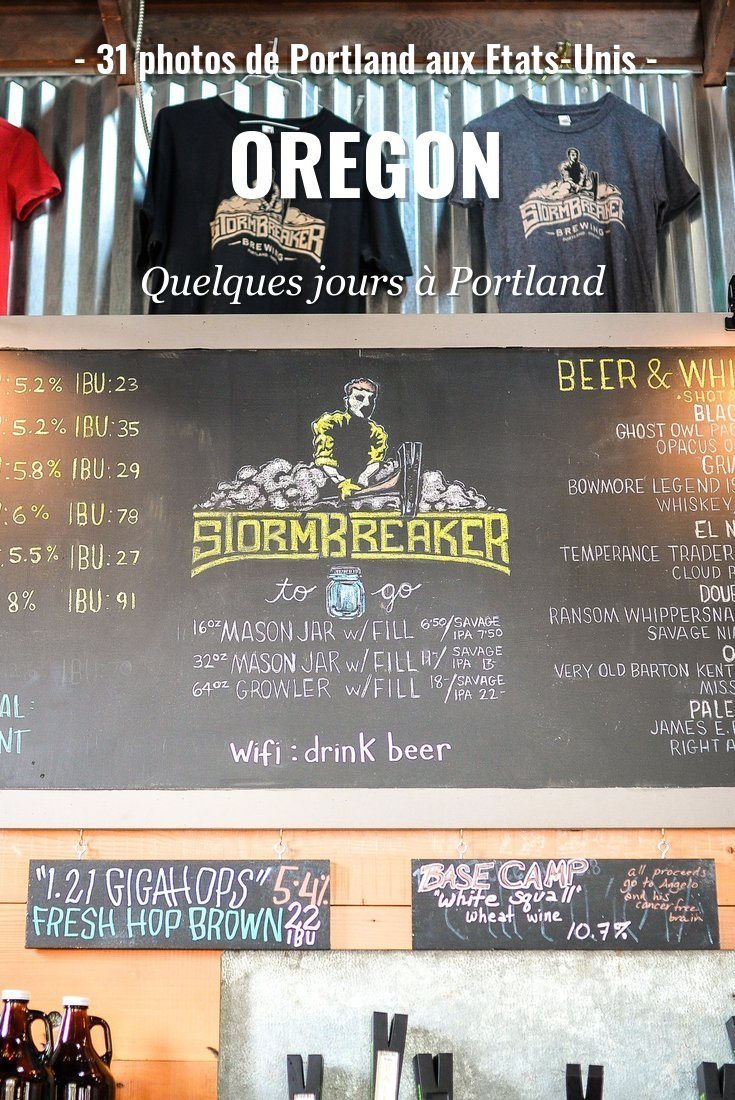 - 31 photos de Portland aux Etats-Unis -
OREGON
Quelques jours à Portland
STORMBREAKER
BREWING
PORTLAND, OREGON
STORMBREAKER
BREWING
PORTLAND, OREGON
5.2% IBU:23
5.2% IBU:35
5.8% IBU:29
6% IBU:78
5.5% IBU:27
8% IBU:91
AL:
NT
STORMBREAKER
to go
16oz MASON JAR w/ FILL 6.50/SAVAGE IPA 7.50
32oz MASON JAR w/ FILL 11-/SAVAGE IPA 13-
64oz GROWLER w/ FILL 18-/SAVAGE IPA 22-
Wifi: drink beer
BEER & WHI
SHOT &
BLAC
GHOST OWL PAC
OPACUS O
GRI
BOWMORE LEGEND IS
WHISKEY
EL N
TEMPERANCE TRADER
CLOUD R
DOU
RANSOM WHIPPERSNA
SAVAGE NI
O
VERY OLD BARTON KENT
MISS
PALE
JAMES E. P
RIGHT A
"1.21 GIGAHOPS" 5.4%
FRESH HOP BROWN 22 IBU
BASE CAMP
"white squall"
wheat wine
10.7%
all proceeds
go to Angelo
and his
cancer free
brain